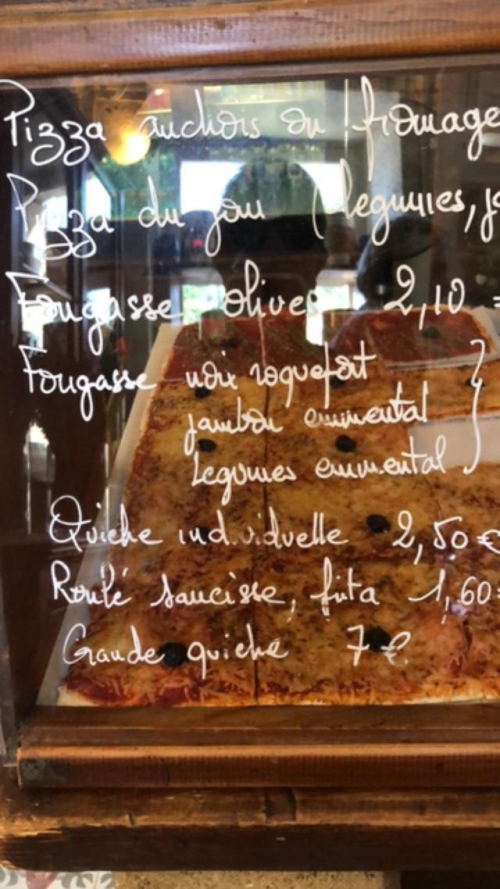 Pizza anchois ou fromage
Pizza du jour (legumes,
Fougasse olives 2,10 €
Fougasse noix roquefort
jambon emmental
Legumes emmental
Quiche individuelle 2,50 €
Roulé saucisse, féta 1,60€
Grande quiche 7 €